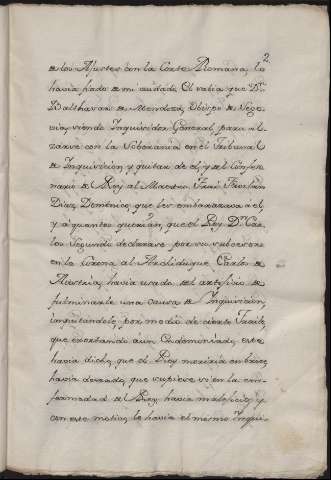 2.
de los Ajustes con la Corte Romana, lo
havia fiado de mi cuidado. Él sabia que Dn.
Balthasar de Mendoza, Obispo de Sego-
via, siendo Inquisidor General, para al-
zarse con la Soberania en el Tribunal
de Inquisicion, y quitar de el, y del Confeso-
nario de Rey al Maestro Frai Froilán
Díaz Dominico, que les embarazava a él,
y a quantos querian, que el Rey Dn. Car-
los Segundo declarase por su subcesor
en la Corona al Archiduque Carlos de
Austria, havia usado del artificio de
fulminarle una causa de Inquisicion,
imputandole por medio de cierto Fraile,
que exortando à un Endemoniado, este
havia dicho, que el Rey moriria en breve,
havia deseado, que supiese si en la en-
fermedad de Rey havia maleficio, y
con este motivo le havia el mismo Inqui-